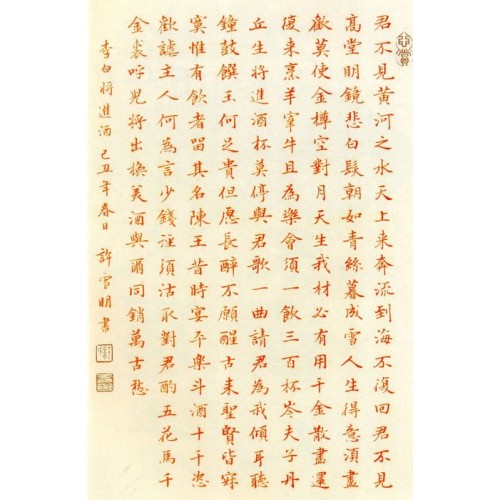 君不見黃河之水天上来奔流到海不復回君不見
高堂明鏡悲白髮朝如青絲暮成雪人生得意須盡
歡莫使金樽空對月天生我材必有用千金散盡還
復来烹羊宰牛且為樂會須一飲三百杯岑夫子丹
丘生將進酒杯莫停與君歌一曲請君為我傾耳聽
鐘鼓饌玉何足貴但愿長醉不願醒古来聖賢皆寂
寞惟有飲者留其名陳王昔時宴平樂斗酒十千恣
歡謔主人何為言少錢徑須沽取對君酌五花馬千
金裘呼兒將出換美酒與爾同銷萬古愁
李白將進酒 己丑年春日 許雪明書